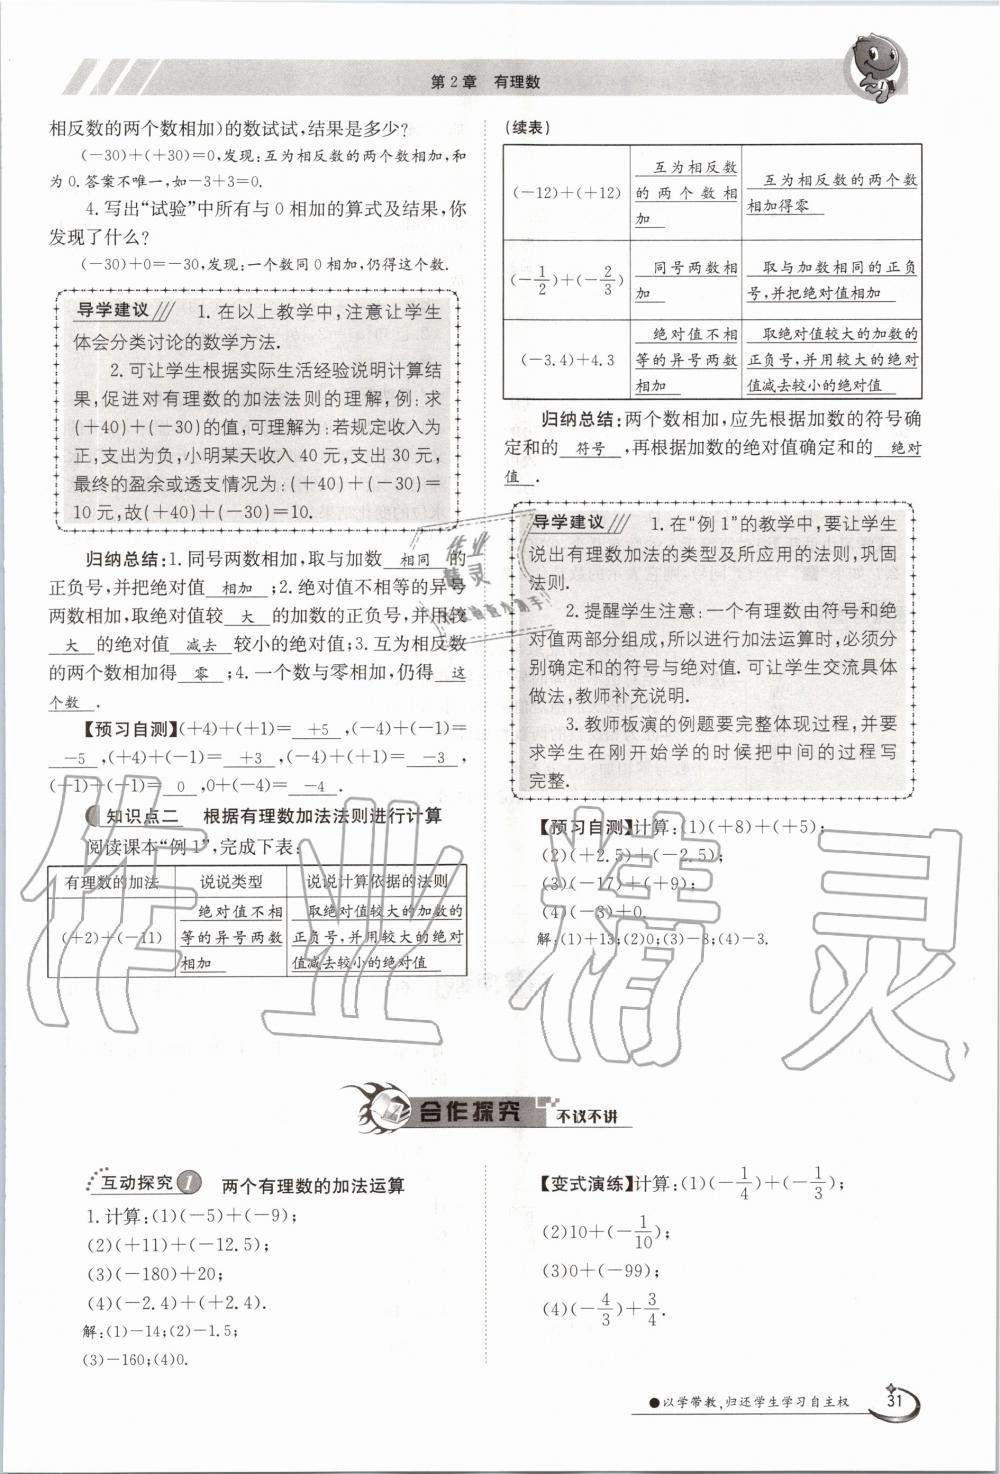 第2章 有理数
相反数的两个数相加)的数试试,结果是多少?
(-30)+(+30)=0,发现:互为相反数的两个数相加,和
为0.答案不唯一,如-3+3=0.
4.写出“试验”中所有与0相加的算式及结果,你
发现了什么?
(-30)+0=-30,发现:一个数同0相加,仍得这个数.
导学建议/// 1.在以上教学中,注意让学生
体会分类讨论的数学方法.
2.可让学生根据实际生活经验说明计算结
果,促进对有理数的加法法则的理解,例:求
(+40)+(-30)的值,可理解为:若规定收入为
正,支出为负,小明某天收入40元,支出30元,
最终的盈余或透支情况为:(+40)+(-30)=
10元,故(+40)+(-30)=10.
归纳总结:1.同号两数相加,取与加数 相同 的
正负号,并把绝对值 相加 ;2.绝对值不相等的异号
两数相加,取绝对值较 大 的加数的正负号,并用较
大 的绝对值 减去 较小的绝对值;3.互为相反数
的两个数相加得 零 ;4.一个数与零相加,仍得 这
个数 .
【预习自测】(+4)+(+1)= +5 ,(-4)+(-1)=
-5 ,(+4)+(-1)= +3 ,(-4)+(+1)= -3 ,
(-1)+(+1)= 0 ,0+(-4)= -4 .
知识点二 根据有理数加法法则进行计算
阅读课本“例1”,完成下表:
有理数的加法 说说类型 说说计算依据的法则
(+2)+(-11) 绝对值不相等的异号两数相加 取绝对值较大的加数的正负号,并用较大的绝对值减去较小的绝对值
(续表)
(-12)+(+12) 互为相反数的两个数相加 互为相反数的两个数相加得零
(-1/2)+(-2/3) 同号两数相加 取与加数相同的正负号,并把绝对值相加
(-3.4)+4.3 绝对值不相等的异号两数相加 取绝对值较大的加数的正负号,并用较大的绝对值减去较小的绝对值
归纳总结:两个数相加,应先根据加数的符号确
定和的 符号 ,再根据加数的绝对值确定和的 绝对
值 .
导学建议/// 1.在“例1”的教学中,要让学生
说出有理数加法的类型及所应用的法则,巩固
法则.
2.提醒学生注意:一个有理数由符号和绝
对值两部分组成,所以进行加法运算时,必须分
别确定和的符号与绝对值.可让学生交流具体
做法,教师补充说明.
3.教师板演的例题要完整体现过程,并要
求学生在刚开始学的时候把中间的过程写
完整.
【预习自测】计算:(1)(+8)+(+5);
(2)(+2.5)+(-2.5);
(3)(-17)+(+9);
(4)(-3)+0.
解:(1)+13;(2)0;(3)-8;(4)-3.
合作探究 不议不讲
互动探究1 两个有理数的加法运算
1.计算:(1)(-5)+(-9);
(2)(+11)+(-12.5);
(3)(-180)+20;
(4)(-2.4)+(+2.4).
解:(1)-14;(2)-1.5;
(3)-160;(4)0.
【变式演练】计算:(1)(-1/4)+(-1/3);
(2)10+(-1/10);
(3)0+(-99);
(4)(-4/3)+3/4.
●以学带教,归还学生学习自主权
31
作业精灵